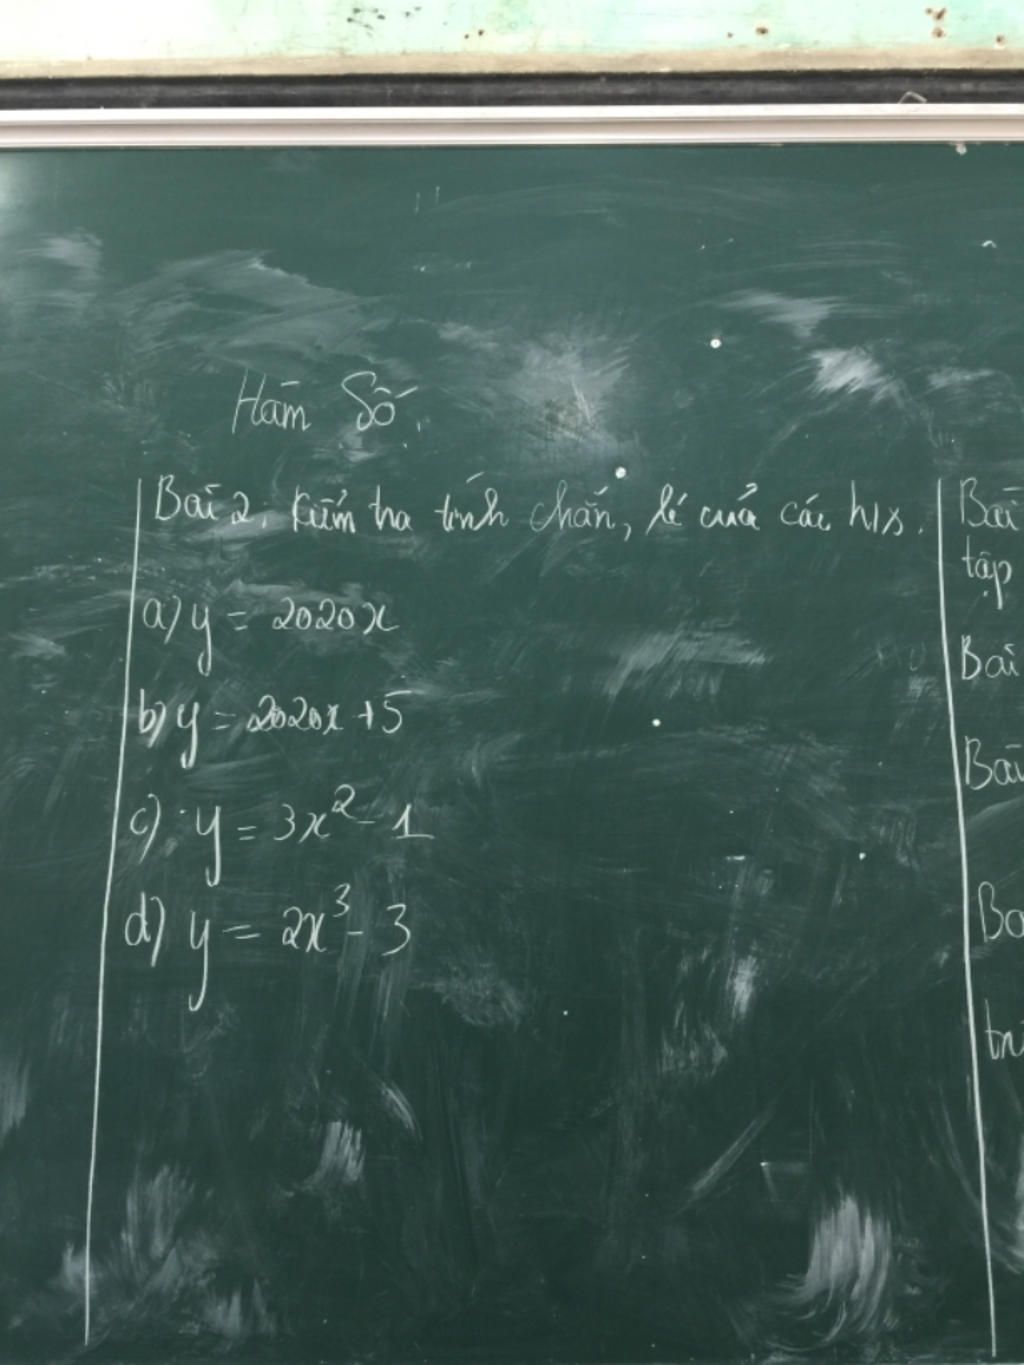 Hàm Số
Bài 2. Kiểm tra tính chẵn, lẻ của các h/s.
a) y = 2020x
b) y = 2020x + 5
c) y = 3x² - 1
d) y = 2x³ - 3
Bài
tập
Bài
Bài